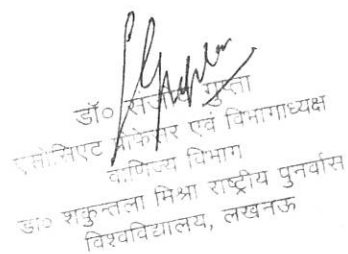 डॉ० संजय गुप्ता
एसोसिएट प्रोफेसर एवं विभागाध्यक्ष
वाणिज्य विभाग
डा० शकुन्तला मिश्रा राष्ट्रीय पुनर्वास
विश्वविद्यालय, लखनऊ